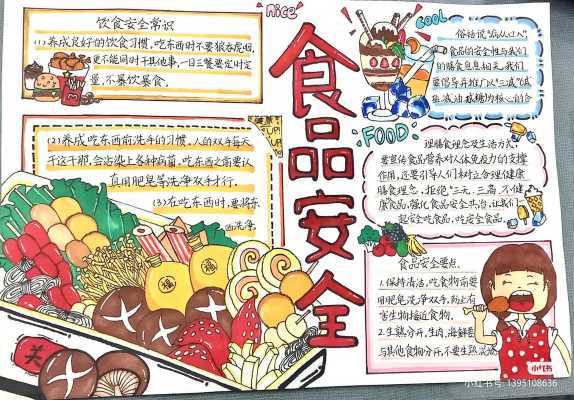 nice
食品安全
饮食安全常识
(1)养成良好的饮食习惯,吃东西时不要狼吞虎咽,
更不能同时干其他事,一日三餐要定时定
量,不暴饮暴食。
(2)养成吃东西前洗手的习惯,人的双手每天
干这干那,会沾染上各种病菌,吃东西之前要认
真用肥皂等洗净双手才行。
(3)在吃东西时,要将东
西洗净。
关
COOL
俗话说"病从口入"
食品的安全性与我们
的膳食息息相关,我们
要倡导并推广以"三减"(减
盐、减油、减糖)为核心的合
FOOD
理膳食理念及生活方式,
着重宣传食品营养对人体免疫力的支撑
作用,还要引导人们树立合理健康
膳食理念,拒绝"三无、三高、不健
康"食品,强化食品安全共治,让我们一
起安全吃食品,吃安全食品。
食品安全要点。
1.保持清洁,吃食物前要
用肥皂洗净双手,防止有
害生物接近食物。
2.生熟分开,生肉、海鲜要
与其他食物分开,不要生熟混
小红书
小红书号: 1395108636